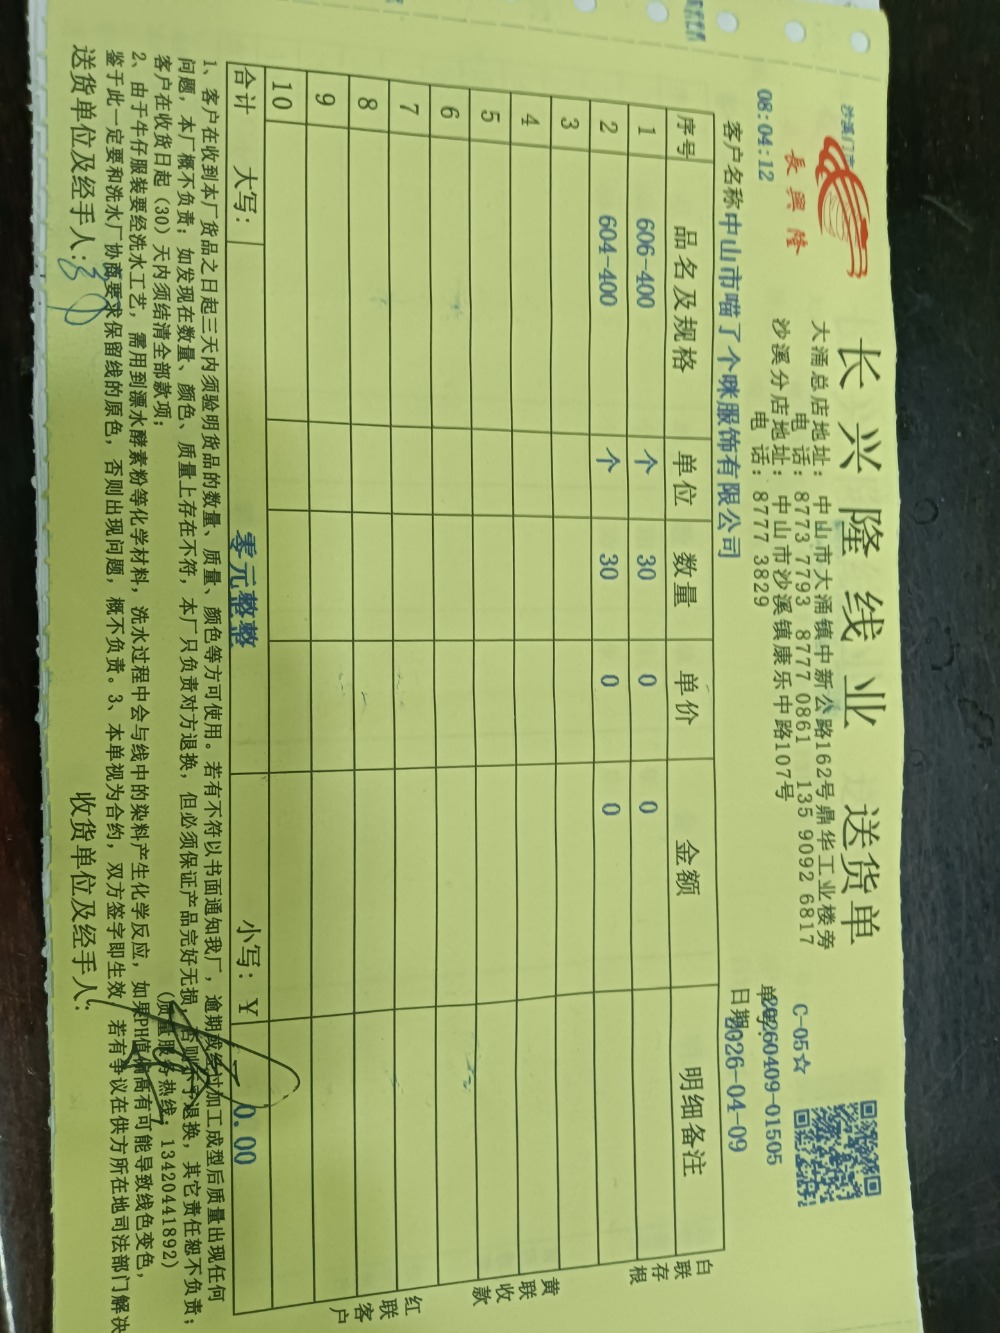 长兴隆线业 送货单
長興隆
沙溪门市
C-05☆
大涌总店地址：中山市大涌镇中新公路162号鼎华工业楼旁
电 话：8773 7793 8777 0861 135 9092 6817
沙溪分店地址：中山市沙溪镇康乐中路107号
电 话：8777 3829
08:04:12
单号:20260409-01505
客户名称 中山市喵了个咪服饰有限公司
日期 2026-04-09
序号 品名及规格 单位 数量 单价 金额 明细备注
1 606-400 个 30 0 0
2 604-400 个 30 0 0
3
4
5
6
7
8
9
10
合计 大写： 零元整整 小写：￥ 0.00
白联存根
黄联收款
红联客户
1、客户在收到本厂货品之日起三天内须验明货品的数量、质量、颜色等方可使用。若有不符以书面通知我厂，逾期或经过加工成型后质量出现任何
问题，本厂概不负责；如发现在数量、颜色、质量上存在不符，本厂只负责对方退换，但必须保证产品完好无损，否则不予退换，其它责任恕不负责；
客户在收货日起（30）天内须结清全部款项； （质量服务热线：13420441892）
2、由于牛仔服装要经洗水工艺，需用到漂水酵素粉等化学材料，洗水过程中会与线中的染料产生化学反应，如果PH值偏高有可能导致线色变色，
鉴于此一定要和洗水厂协商要求保留线的原色，否则出现问题，概不负责。3、本单视为合约，双方签字即生效，若有争议在供方所在地司法部门解决
送货单位及经手人： 收货单位及经手人：